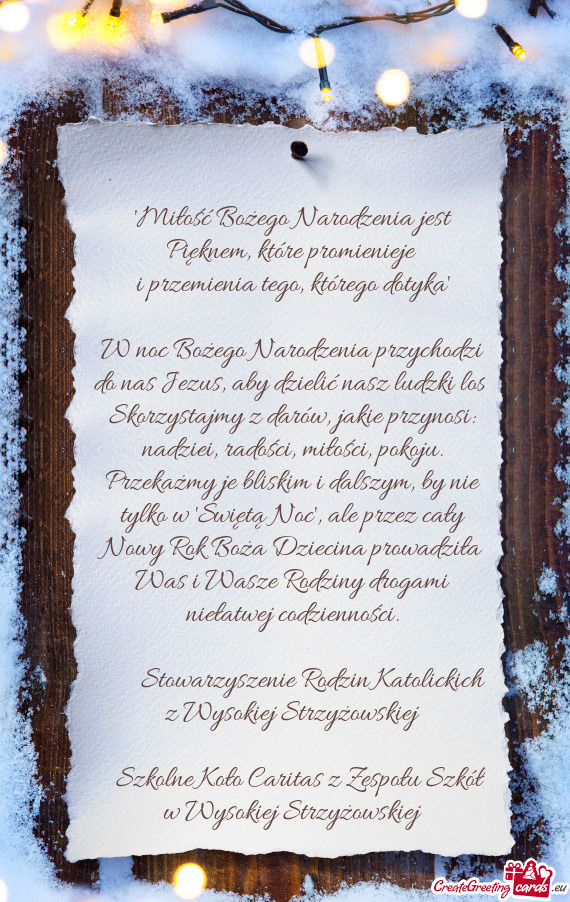 'Miłość Bożego Narodzenia jest
Pięknem, które promienieje
i przemienia tego, którego dotyka'
W noc Bożego Narodzenia przychodzi
do nas Jezus, aby dzielić nasz ludzki los
Skorzystajmy z darów, jakie przynosi:
nadziei, radości, miłości, pokoju.
Przekażmy je bliskim i dalszym, by nie
tylko w 'Świętą Noc', ale przez cały
Nowy Rok Boża Dziecina prowadziła
Was i Wasze Rodziny drogami
niełatwej codzienności.
Stowarzyszenie Rodzin Katolickich
z Wysokiej Strzyżowskiej
Szkolne Koło Caritas z Zespołu Szkół
w Wysokiej Strzyżowskiej
CreateGreeting cards .eu